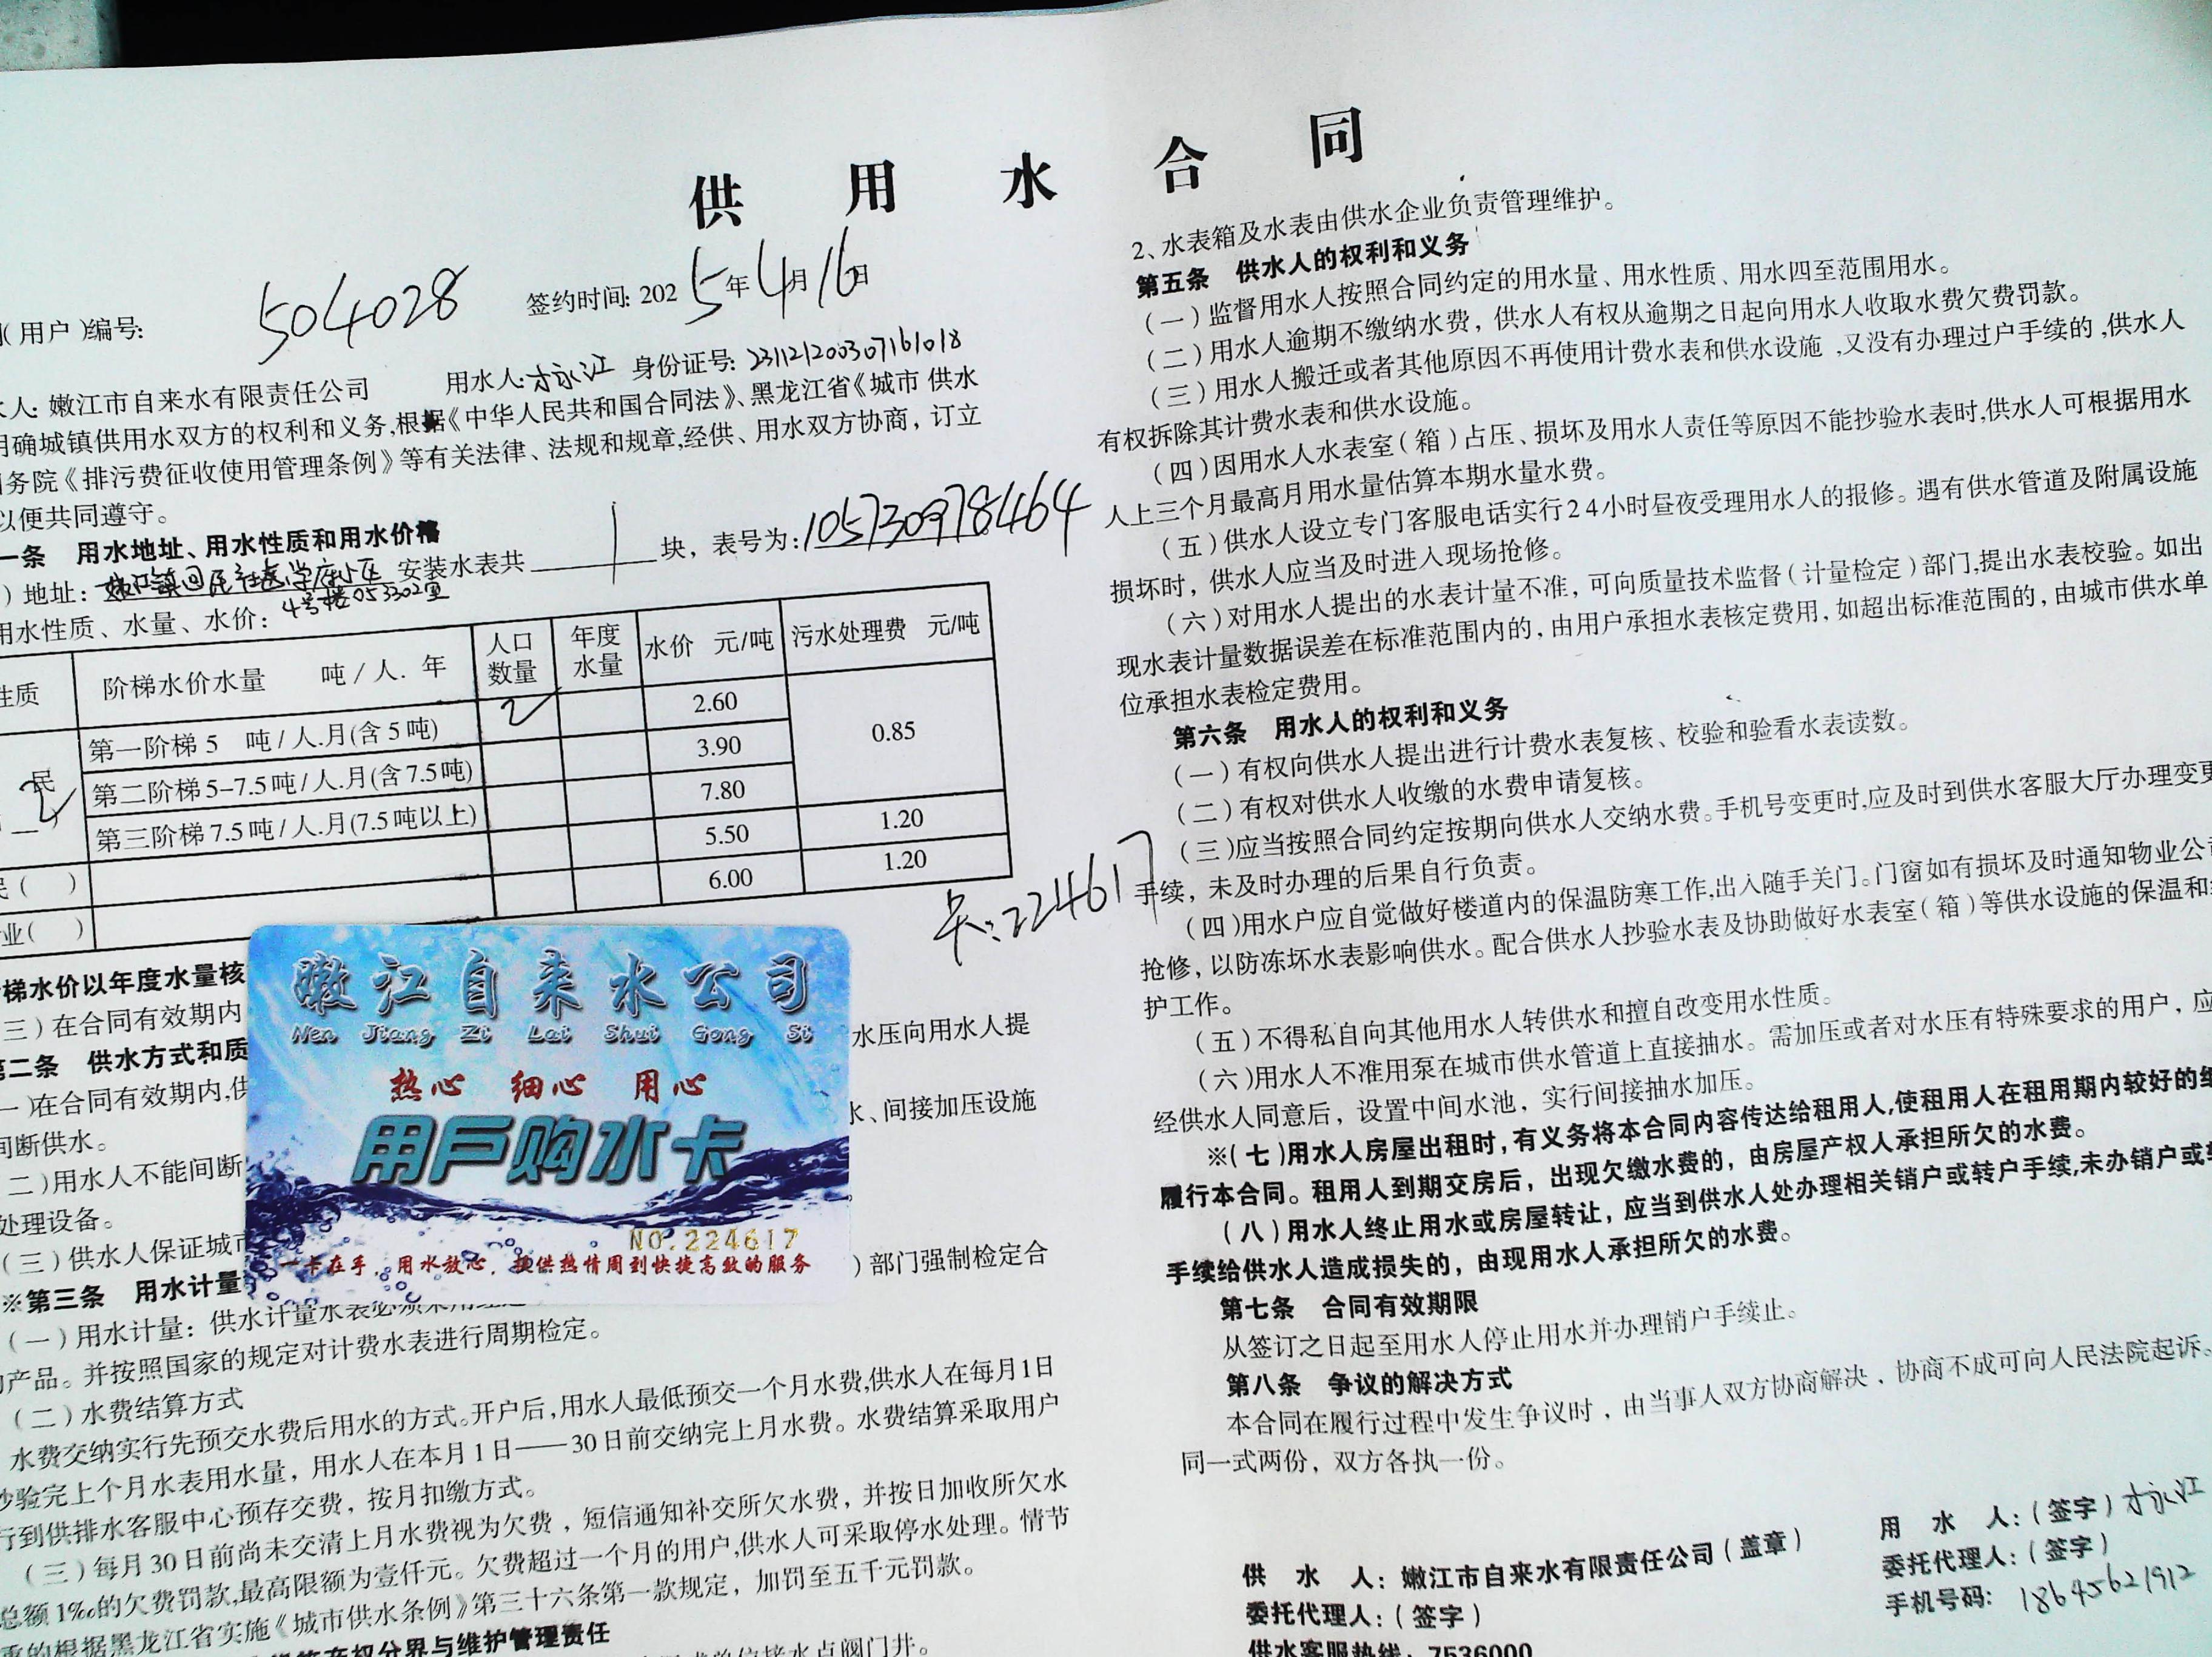 供用水合同
(用户)编号: 504028 签约时间: 2025年4月16日
水人: 嫩江市自来水有限责任公司 用水人: 才永江 身份证号: 231121200307161018
明确城镇供用水双方的权利和义务,根据《中华人民共和国合同法》、黑龙江省《城市 供水
国务院《排污费征收使用管理条例》等有关法律、法规和规章,经供、用水双方协商，订立
以便共同遵守。
一条 用水地址、用水性质和用水价格
)地址: 嫩江镇回民社区学府小区 安装水表共 1 块，表号为: 105730978464
4号楼053302室
用水性质、水量、水价:
性质 阶梯水价水量 吨/人.年 人口数量 年度水量 水价 元/吨 污水处理费 元/吨
民 第一阶梯 5 吨/人.月(含5吨) 2 2.60 0.85
2 第二阶梯 5-7.5吨/人.月(含7.5吨) 3.90
第三阶梯 7.5吨/人.月(7.5吨以上) 7.80
民( ) 5.50 1.20
业( ) 6.00 1.20
卡:224617
梯水价以年度水量核
三)在合同有效期内 水压向用水人提
第二条 供水方式和质
一)在合同有效期内,供 水、间接加压设施
间断供水。
二)用水人不能间断
处理设备。
(三)供水人保证城市 )部门强制检定合
※第三条 用水计量
(一)用水计量: 供水计量水表必须采用
产品。并按照国家的规定对计费水表进行周期检定。
(二)水费结算方式
水费交纳实行先预交水费后用水的方式。开户后,用水人最低预交一个月水费,供水人在每月1日
抄验完上个月水表用水量，用水人在本月1日——30日前交纳完上月水费。水费结算采取用户
行到供排水客服中心预存交费，按月扣缴方式。
(三)每月30日前尚未交清上月水费视为欠费，短信通知补交所欠水费，并按日加收所欠水
总额1‰的欠费罚款,最高限额为壹仟元。欠费超过一个月的用户,供水人可采取停水处理。情节
重的根据黑龙江省实施《城市供水条例》第三十六条第一款规定，加罚至五千元罚款。
产权分界与维护管理责任
单位接水点阀门井。
嫩江自来水公司
Nen Jiang Zi Lai Shui Gong Si
热心 细心 用心
用户购水卡
NO.224617
一卡在手，用水放心，提供热情周到快捷高效的服务
2、水表箱及水表由供水企业负责管理维护。
第五条 供水人的权利和义务
(一)监督用水人按照合同约定的用水量、用水性质、用水四至范围用水。
(二)用水人逾期不缴纳水费，供水人有权从逾期之日起向用水人收取水费欠费罚款。
(三)用水人搬迁或者其他原因不再使用计费水表和供水设施,又没有办理过户手续的,供水人
有权拆除其计费水表和供水设施。
(四)因用水人水表室(箱)占压、损坏及用水人责任等原因不能抄验水表时,供水人可根据用水
人上三个月最高月用水量估算本期水量水费。
(五)供水人设立专门客服电话实行24小时昼夜受理用水人的报修。遇有供水管道及附属设施
损坏时，供水人应当及时进入现场抢修。
(六)对用水人提出的水表计量不准，可向质量技术监督(计量检定)部门,提出水表校验。如出
现水表计量数据误差在标准范围内的，由用户承担水表核定费用，如超出标准范围的，由城市供水单
位承担水表检定费用。
第六条 用水人的权利和义务
(一)有权向供水人提出进行计费水表复核、校验和验看水表读数。
(二)有权对供水人收缴的水费申请复核。
(三)应当按照合同约定按期向供水人交纳水费。手机号变更时,应及时到供水客服大厅办理变更
手续，未及时办理的后果自行负责。
(四)用水户应自觉做好楼道内的保温防寒工作,出入随手关门。门窗如有损坏及时通知物业公司
抢修，以防冻坏水表影响供水。配合供水人抄验水表及协助做好水表室(箱)等供水设施的保温和
护工作。
(五)不得私自向其他用水人转供水和擅自改变用水性质。
(六)用水人不准用泵在城市供水管道上直接抽水。需加压或者对水压有特殊要求的用户，应
经供水人同意后，设置中间水池，实行间接抽水加压。
※(七)用水人房屋出租时,有义务将本合同内容传达给租用人,使租用人在租用期内较好的继
履行本合同。租用人到期交房后，出现欠缴水费的，由房屋产权人承担所欠的水费。
(八)用水人终止用水或房屋转让，应当到供水人处办理相关销户或转户手续,未办销户或
手续给供水人造成损失的，由现用水人承担所欠的水费。
第七条 合同有效期限
从签订之日起至用水人停止用水并办理销户手续止。
第八条 争议的解决方式
本合同在履行过程中发生争议时，由当事人双方协商解决，协商不成可向人民法院起诉。
同一式两份，双方各执一份。
供 水 人: 嫩江市自来水有限责任公司(盖章) 用 水 人:(签字) 才永江
委托代理人:(签字) 委托代理人:(签字)
供水客服热线: 7536000 手机号码: 18645621912